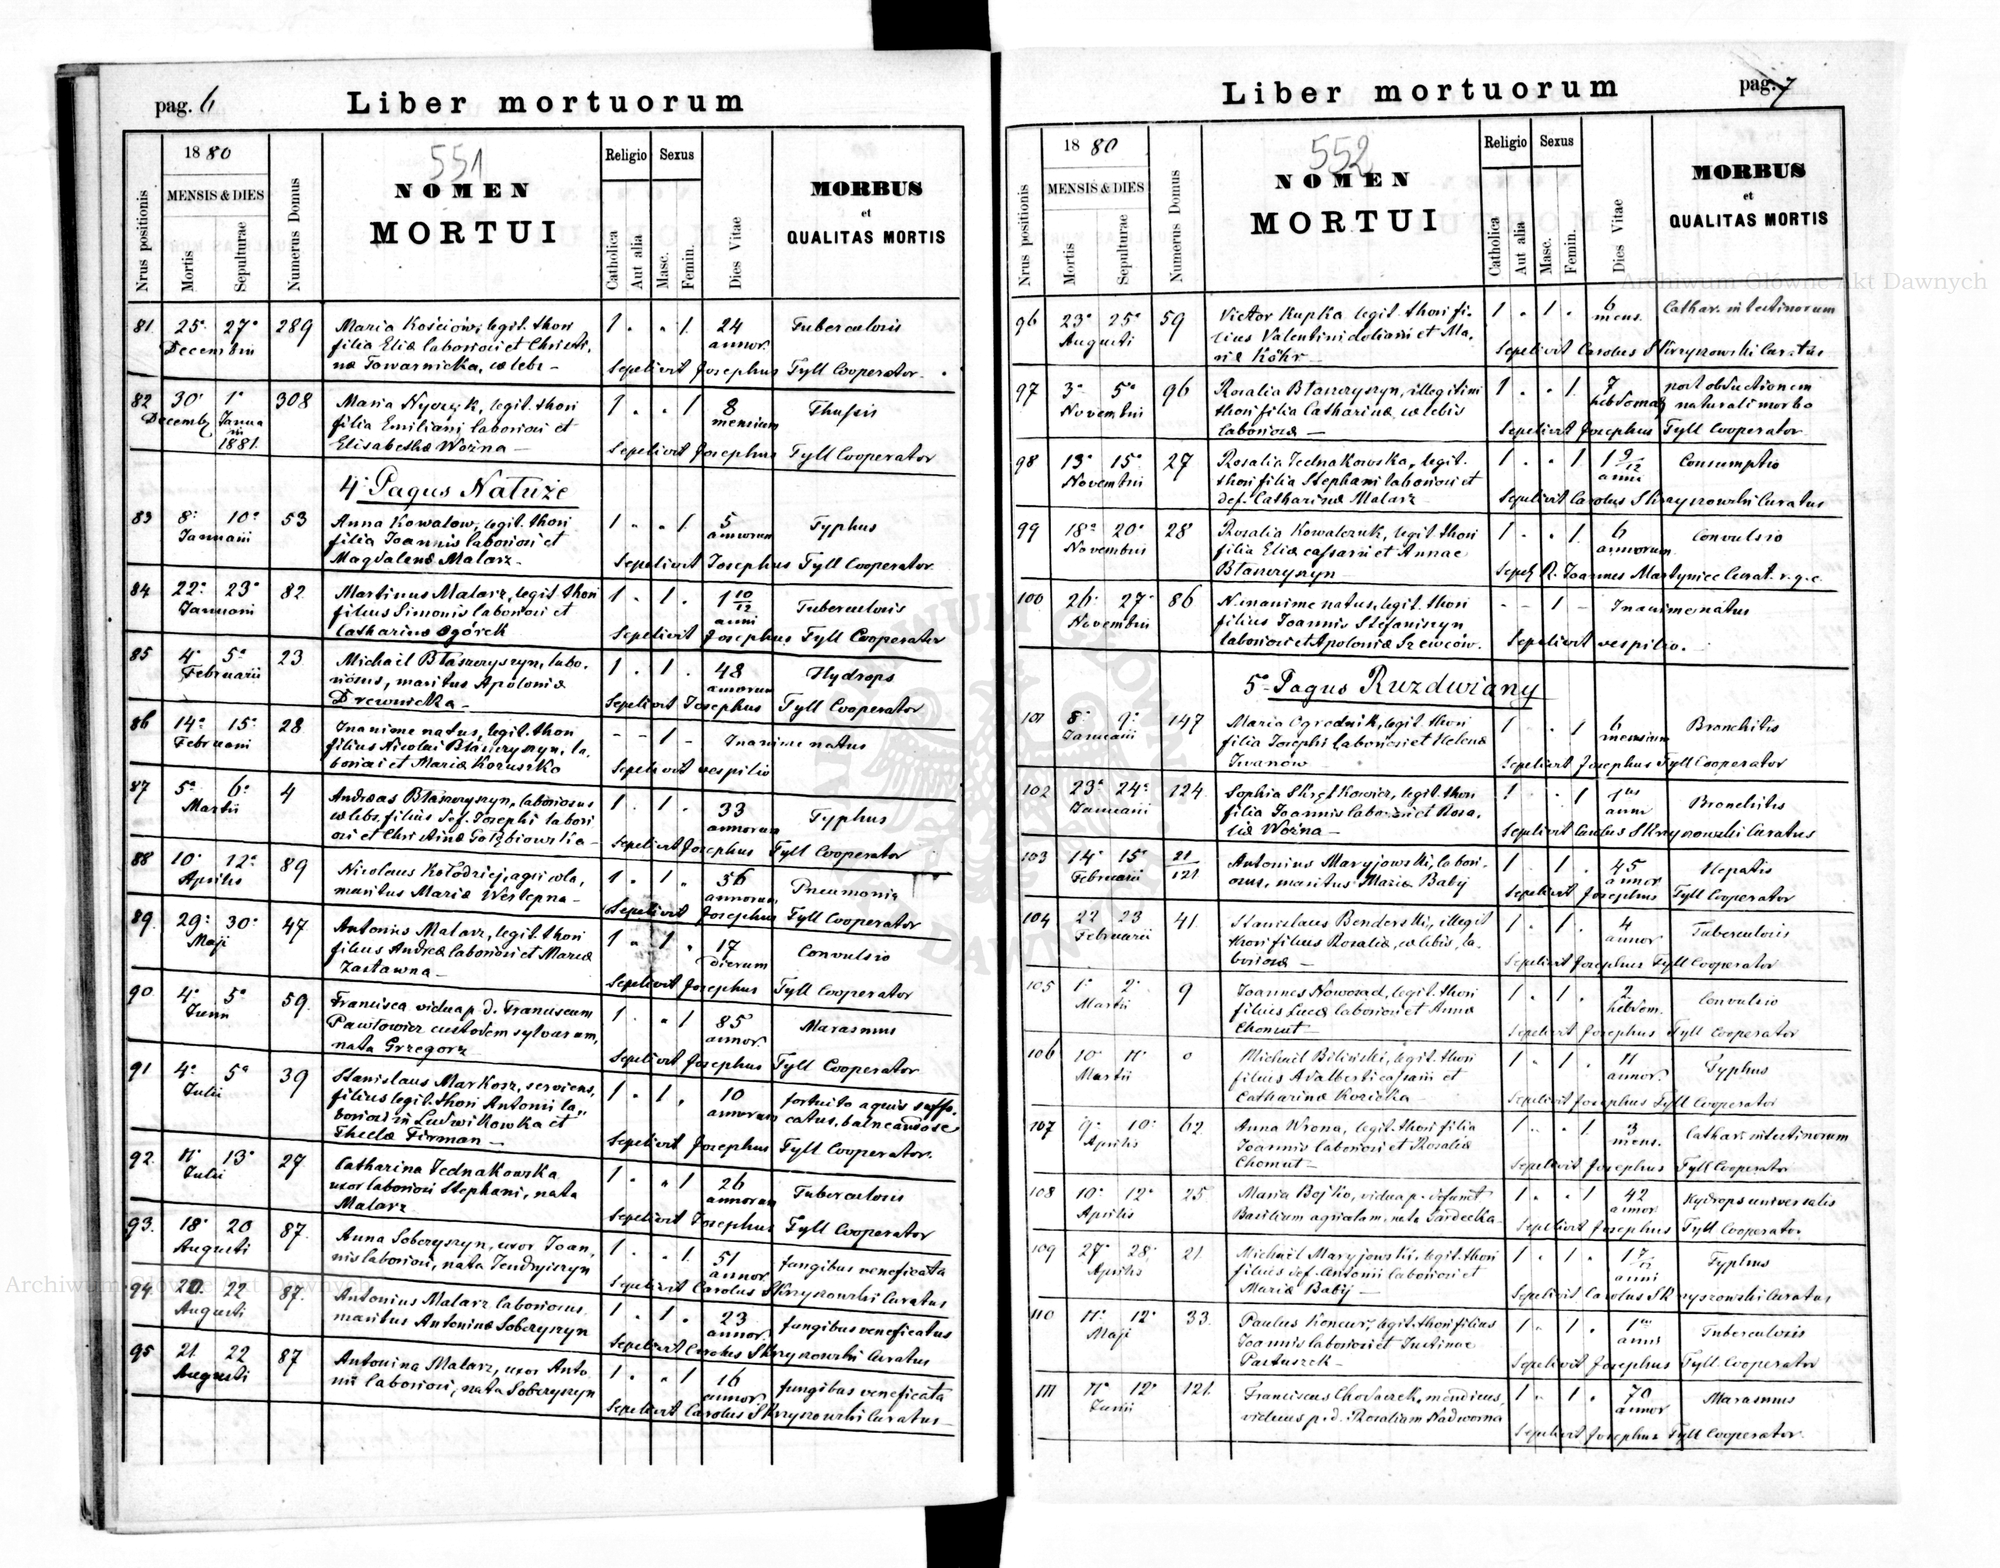 pag. 6
Liber mortuorum
1880
551
MENSIS & DIES
Nrus positionis
Mortis
Sepulturae
Numerus Domus
NOMEN
MORTUI
Religio
Sexus
Catholica
Aut alia
Masc.
Femin.
Dies Vitae
MORBUS
et
QUALITAS MORTIS
81. 25. 27. 289 Maria Kościów, legit. thori 1 . . 1. 24 Tuberculosis
Decembris filia Eliæ laboriosi et Christi, annor.
næ Towarnicka, cælebs - Sepelivit Josephus Tyll Cooperator.
82 30 1 308 Maria Nyczyk, legit. thori 1 . . 1 8 Thysis
Decemb. Janua filia Emiliani laboriosi et mensium
1881. Elisabethæ Woźna - Sepelivit Josephus Tyll Cooperator
4. Pagus Natuże
83 8. 10. 53 Anna Kowalow, legit. thori 1 . . 1. 5 Typhus
Januarii filia Joannis laboriosi et annorum
Magdalenæ Malarz. Sepelivit Josephus Tyll Cooperator
84 22. 23. 82 Martinus Malarz, legit. thori 1 . 1 . 1 10/12 Tuberculosis
Januarii filius Simonis laboriosi et anni
Catharinæ Ogórek Sepelivit Josephus Tyll Cooperator
85 4. 5. 23 Michaël Błaszczyszyn, labo- 1 . 1 . 48 Hydrops
Februarii riosus, maritus Apoloniæ annorum
Drewnicka - Sepelivit Josephus Tyll Cooperator
86 14. 15. 28 Inanime natus, legit. thori - - 1 - Inanime natus
Februarii filius Nicolai Błaszczyszyn, la-
boriosi et Mariæ Kozuszko Sepelivit vespilio
87 5. 6. 4 Andreas Błaszczyszyn, laboriosus 1 . 1 . 33 Typhus
Martii cælebs, filius def. Josephi labori annorum
osi et Christinæ Gołębiowska - Sepelivit Josephus Tyll Cooperator
88 10. 12. 89 Nicolaus Kołodziej, agricola, 1 . 1 . 56 Pneumonia
Aprilis maritus Mariæ Westepna - annorum
Sepelivit Josephus Tyll Cooperator
89. 29. 30. 47 Antonius Malarz, legit. thori 1 . 1 . 17 Convulsio
Maji filius Andreæ laboriosi et Mariæ dierum
Zastawna - Sepelivit Josephus Tyll Cooperator
90. 4. 5. 59. Francisca vidua p. d. Franciscum 1 . . 1 85 Marasmus
Junii Pawłowicz custodem sylvarum, annor.
nata Grzegorz Sepelivit Josephus Tyll Cooperator
91 4. 5. 39 Stanislaus Markosz, serviens, 1 . 1 . 10 fortuito aquis suffo-
Julii filius legit. thori Antonii la- annorum catus, balneando se
boriosi in Ludwikowka et
Theclæ Firman - Sepelivit Josephus Tyll Cooperator.
92. 11. 13. 27 Catharina Jednakowska 1 . . 1 26 Tuberculosis
Julii uxor laboriosi Stephani, nata annorum
Malarz Sepelivit Josephus Tyll Cooperator
93. 18. 20 87. Anna Soberyszyn, uxor Joan, 1 . . 1. 51 fungibus veneficata
Augusti nis laboriosi, nata Jendryiszyn annor.
Sepelivit Carolus Skrzyszowski Curatus
94. 20. 22 87. Antonius Malarz laboriosus 1 . 1 . 23 fungibus veneficatus
Augusti maritus Antoninæ Soberyszyn annor.
Sepelivit Carolus Skrzyszowski Curatus
95 21 22 87 Antonina Malarz, uxor Anto- 1 . . 1 16 fungibus veneficata
Augusti nii laboriosi, nata Soberyszyn annor.
Sepelivit Carolus Skrzyszowski Curatus
pag. 7
Liber mortuorum
1880
552
MENSIS & DIES
Nrus positionis
Mortis
Sepulturae
Numerus Domus
NOMEN
MORTUI
Religio
Sexus
Catholica
Aut alia
Masc.
Femin.
Dies Vitae
MORBUS
et
QUALITAS MORTIS
96 23. 25. 59 Victor Kupka legit. thori fi- 1 . 1 . 6 Cathar. intestinorum
Augusti lius Valentini doliarii et Ma- mens.
riæ Köhr - Sepelivit Carolus Skrzyszowski Curatus
97 3. 5. 96 Rosalia Błaszczyszyn, illegitimi 1 . . 1. 7 post obductionem
Novembris thori filia Catharinæ cælebis hebdomad. naturali morbo
laboriosæ - Sepelivit Josephus Tyll Cooperator
98 13. 15. 27 Rosalia Jednakowska, legit. 1 . . 1 1 9/12 Consumptio
Novembris thori filia Stephani laboriosi et anni
def. Catharinæ Malarz Sepelivit Carolus Skrzyszowski Curatus
99 18. 20. 28 Rosalia Kowalczuk, legit. thori 1 . . 1. 6 Convulsio
Novembris filia Eliæ caſsarii et Annae annorum
Błaszczyszyn - Sepel. R. Joannes Martyniec Curat. r. g. c.
100 26. 27. 86 N. inanime natus, legit. thori - - 1 - Inanime natus
Novembris filius Joannis Stefaniszyn
laboriosi et Apoloniæ Szewców. Sepelivit vespilio.
5. Pagus Ruzdwiany
101 8. 9. 147 Maria Ogrodnik, legit. thori 1 . . 1 6 Bronchitis
Januarii filia Josephi laboriosi et Helenæ mensium
Iwanów - Sepelivit Josephus Tyll Cooperator
102 23. 24. 124. Sophia Skrętkowicz, legit. thori 1 . . 1 Bronchitis
Januarii filia Joannis laboriosi et Rosa,
liæ Woźna - Sepelivit Carolus Skrzyszowski Curatus
103 14. 15. 21/121 Antonius Maryjowski, labori- 1 . 1 . 45 Hepatis
Februarii osus, maritus Mariæ Babij annor.
Sepelivit Josephus Tyll Cooperator
104 22 23 41. Stanislaus Benderski, illegit. 1 . 1 . 4 Tuberculosis
Februarii thori filius Rosaliæ, cælebis, la- annor.
boriosæ - Sepelivit Josephus Tyll Cooperator
105 1. 2. 9 Joannes Nowosad, legit. thori 1 . 1 . 2 Convulsio
Martii filius Lucæ laboriosi et Annæ hebdom.
Chomut - Sepelivit Josephus Tyll Cooperator
106 10. 11. 0 Michaël Biliński, legit. thori 1 . 1 . 11 Typhus
Martii filius Adalberti caſsarii et annor.
Catharinæ Kozicka - Sepelivit Josephus Tyll Cooperator
107 9. 10. 62 Anna Wrona, legit. thori filia 1 . . 1. 3 Cathar. intestinorum
Aprilis Joannis laboriosi et Rosaliæ mens.
Chomut - Sepelivit Josephus Tyll Cooperator
108 10. 12. 25. Maria Bojko, vidua p. defunct. 1 . . 1 42 Hydrops universalis
Aprilis Basilium agricolam, nata Pardecka annor.
Sepelivit Josephus Tyll Cooperator
109 27. 28. 21. Michaël Maryjowski, legit. thori 1 . 1 . Typhus
Aprilis filius def. Antonii laboriosi et anni
Mariæ Babij - Sepelivit. Carolus Skrzyszowski Curatus
110 11. 12. 33. Paulus Koncur, legit. thori filius 1 . 1 . Tuberculosis
Maji Joannis laboriosi et Justinae
Partuszek - Sepelivit Josephus Tyll Cooperator
111 11. 12. 121. Franciscus Chodaczek, mendicus, 1 . 1 . 70 Marasmus
Junii viduus p. d. Rosaliam Nadworna annor.
Sepelivit Josephus Tyll Cooperator.
Archiwum Główne Akt Dawnych
Archiwum Główne Akt Dawnych
ARCHIWUM GŁÓWNE AKT DAWNYCH